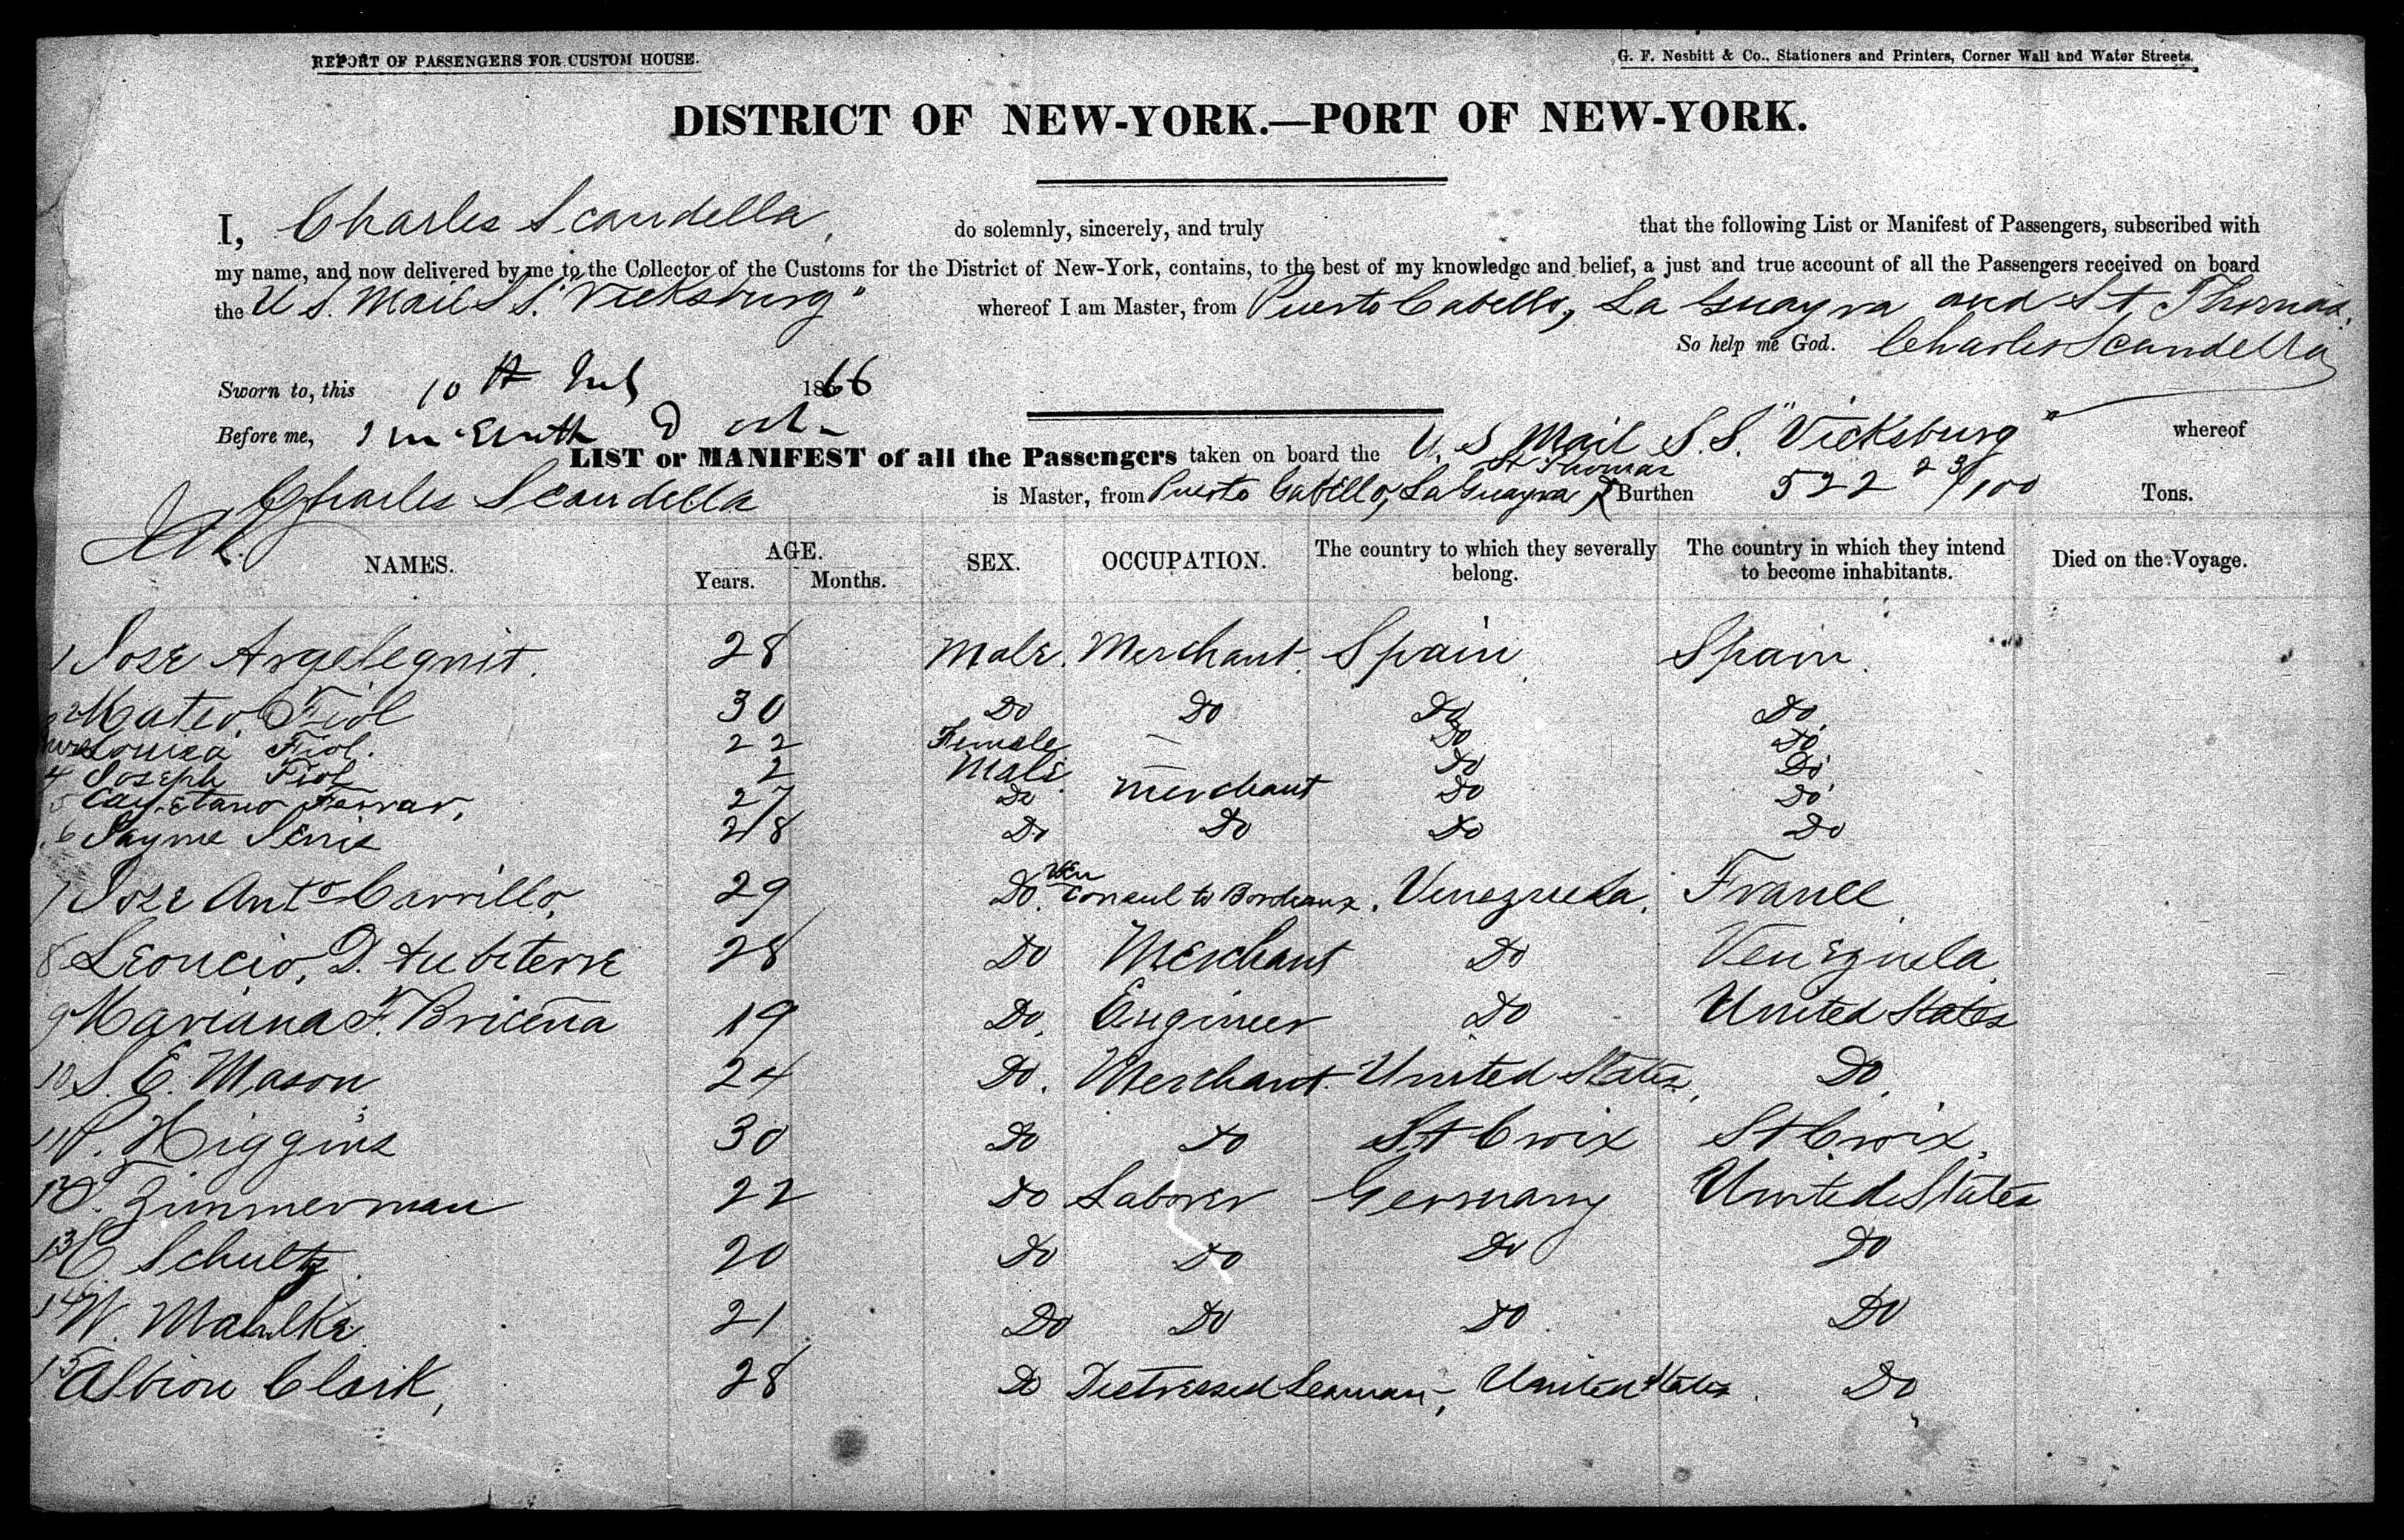 REPORT OF PASSENGERS FOR CUSTOM HOUSE.
G. F. Nesbitt & Co., Stationers and Printers, Corner Wall and Water Streets.
DISTRICT OF NEW-YORK.—PORT OF NEW-YORK.
I, Charles Scandella, do solemnly, sincerely, and truly that the following List or Manifest of Passengers, subscribed with
my name, and now delivered by me to the Collector of the Customs for the District of New-York, contains, to the best of my knowledge and belief, a just and true account of all the Passengers received on board
the U S. Mail S S. "Vicksburg" whereof I am Master, from Puerto Cabello, La Guayra and St Thomas.
So help me God. Charles Scandella
Sworn to, this 10th 1866
Before me,
LIST or MANIFEST of all the Passengers taken on board the U. S Mail S. S. "Vicksburg" whereof
Charles Scandella is Master, from Puerto Cabello, La Guayra & St Thomas Burthen 522 23/100 Tons.
NAMES. AGE. Years. Months. SEX. OCCUPATION. The country to which they severally belong. The country in which they intend to become inhabitants. Died on the Voyage.
1 Jose Argeleguit. 28 Male. Merchant. Spain Spain.
2 Mateo Fiol 30 Do Do Do Do
3 Louisa Fiol. 22 Female — Do Do
4 Joseph Fiol 2 Male — Do Do
5 Cayetano Ferrar, 27 Do Merchant Do Do
6 Jayme Serris 28 Do Do Do Do
7 Jose Anto Carrillo, 29 Do. Ven Consul to Bordeaux. Venezuela. France
8 Leoncio, D. Aubeterre 28 Do Merchant Do Venezuela
9 Mariana F. Bricena 19 Do. Engineer Do United States
10 S. E. Mason 24 Do. Merchant United States, Do
11 P. Higgins 30 Do Do St Croix St Croix,
12 Zimmerman 22 Do Laborer Germany United States
13 C Schultz 20 Do Do Do Do
14 W. Mahlke 21 Do Do Do Do
15 Albion Clark, 28 Do Distressed Seaman, United States. Do